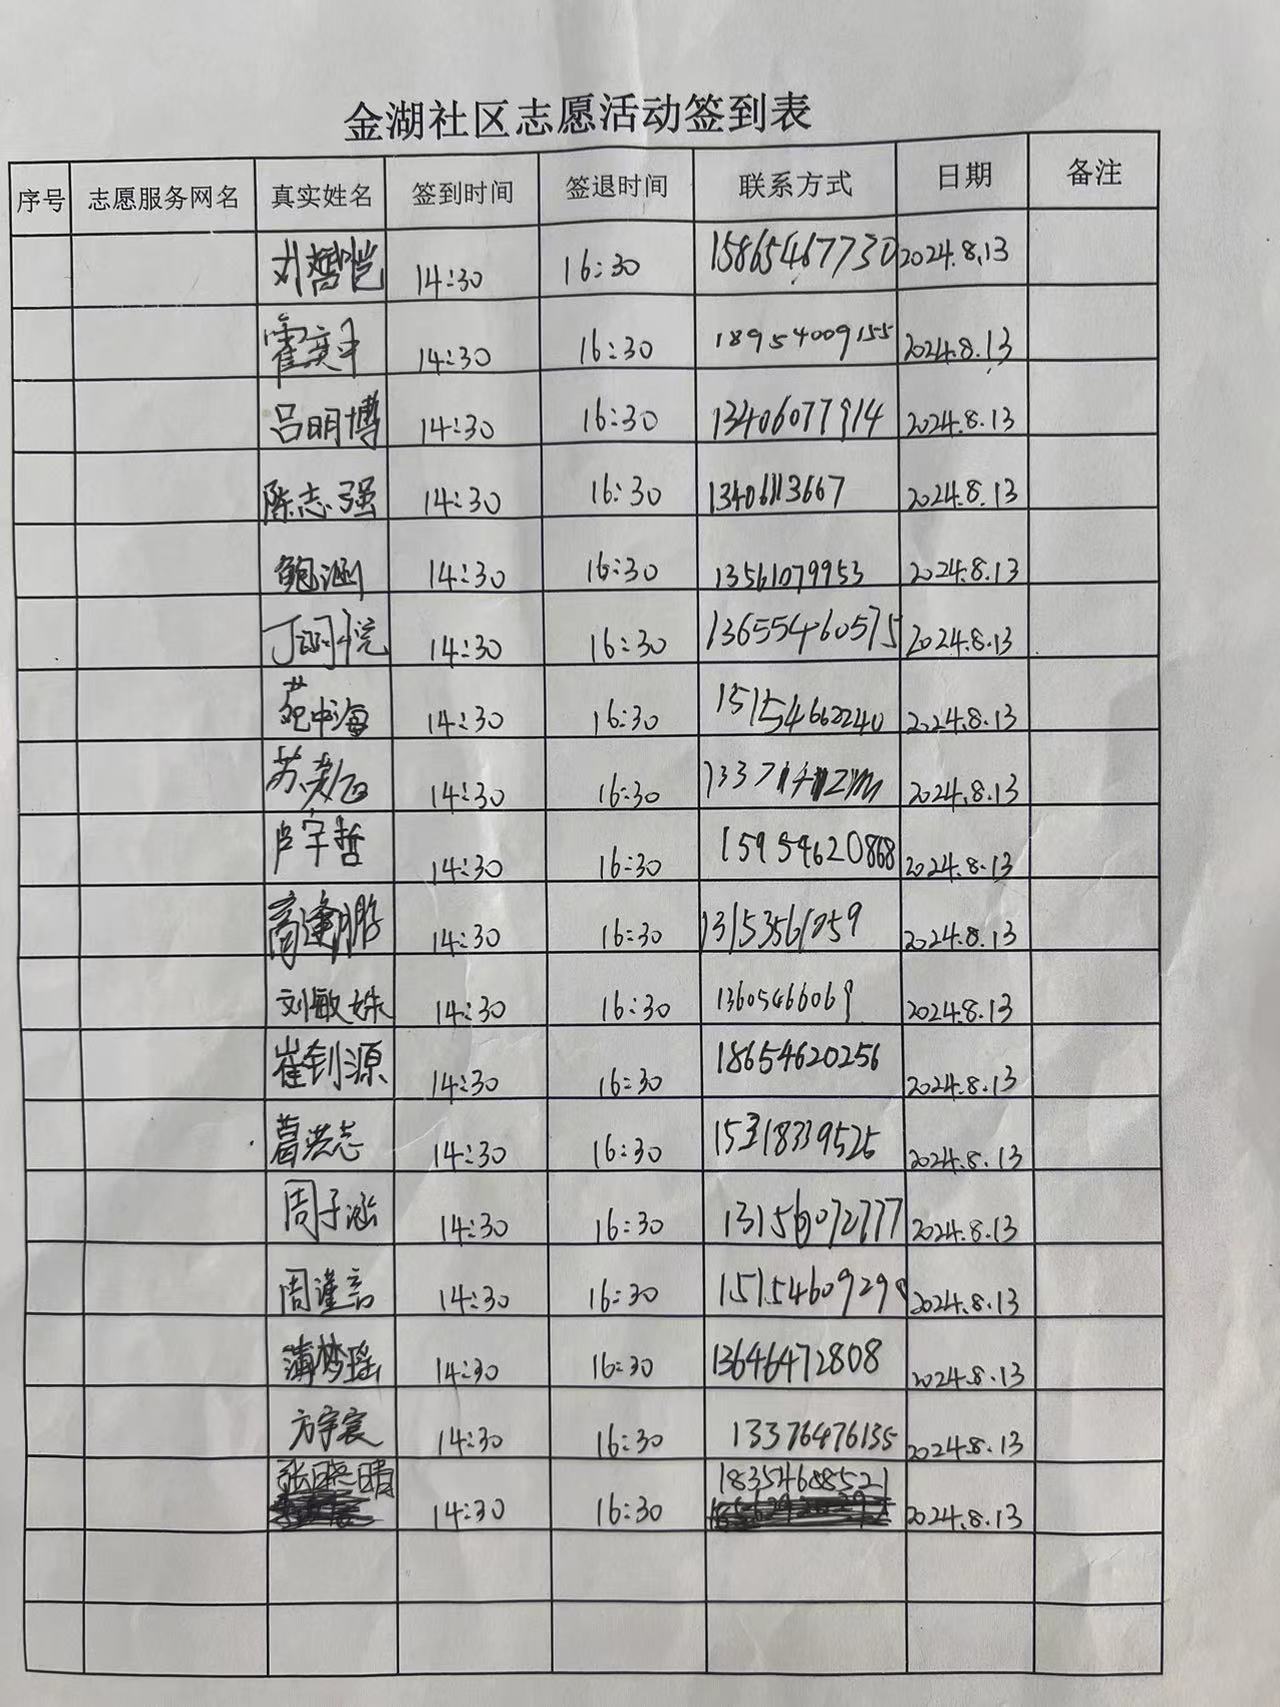 金湖社区志愿活动签到表
序号 志愿服务网名 真实姓名 签到时间 签退时间 联系方式 日期 备注
刘哲恺 14:30 16:30 15865467730 2024.8.13
霍奕 14:30 16:30 18954009155 2024.8.13
吕明博 14:30 16:30 13406077914 2024.8.13
陈志强 14:30 16:30 2024.8.13
鲍涵 14:30 16:30 13561079953 2024.8.13
丁 悦 14:30 16:30 13655460575 2024.8.13
苑中海 14:30 16:30 15154660240 2024.8.13
苏 14:30 16:30 2024.8.13
卢宇哲 14:30 16:30 15954620868 2024.8.13
高逢鹏 14:30 16:30 2024.8.13
刘敏姝 14:30 16:30 13605466069 2024.8.13
崔钊源 14:30 16:30 18654620256 2024.8.13
葛洪志 14:30 16:30 15318339525 2024.8.13
周子涵 14:30 16:30 13156072777 2024.8.13
周谨言 14:30 16:30 15154609298 2024.8.13
蒲梦瑶 14:30 16:30 13646472808 2024.8.13
方宇宸 14:30 16:30 13376476135 2024.8.13
张晓晴 14:30 16:30 18354688521 2024.8.13